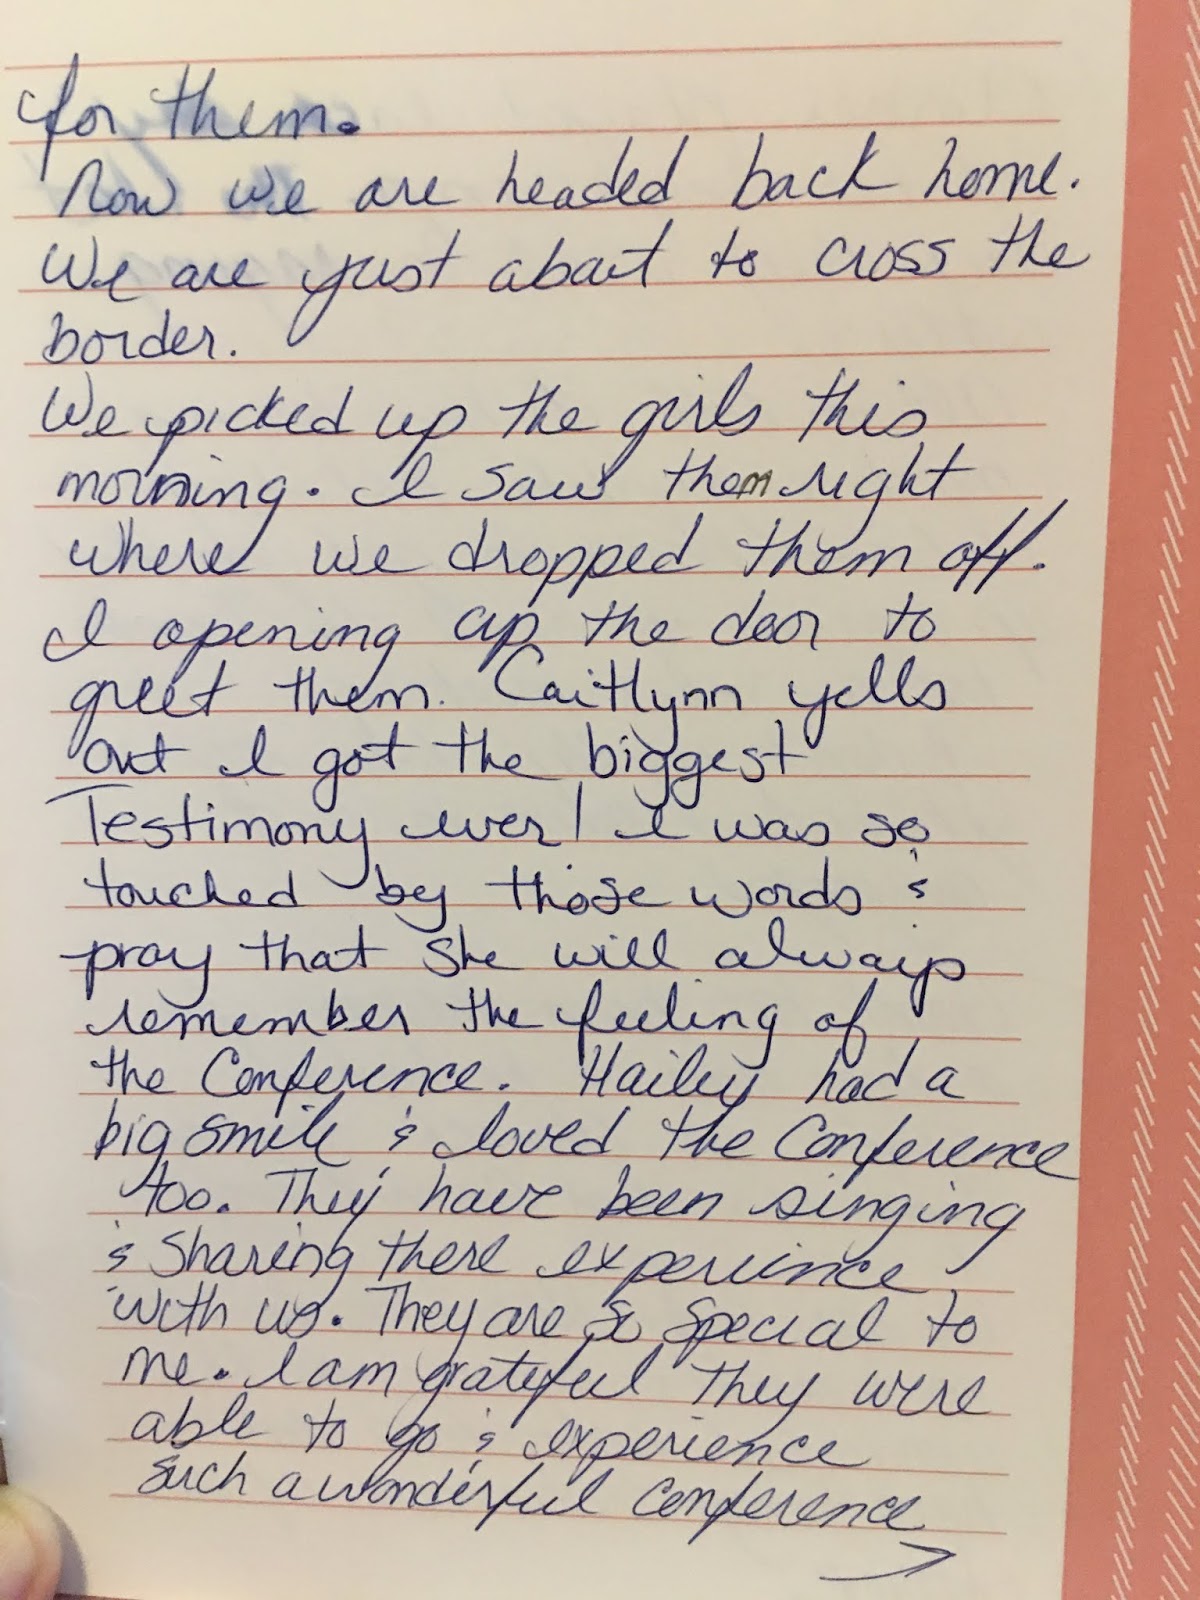 for them.
Now we are headed back home.
We are just about to cross the
border.
We picked up the girls this
morning. I saw them right
where we dropped them off.
I opening up the door to
greet them. Caitlynn yells
out I got the biggest
Testimony ever! I was so
touched by those words &
pray that she will always
remember the feeling of
the Conference. Hailey had a
big smile & loved the Conference
too. They have been singing
& Sharing there experience
with us. They are so special to
me. I am grateful they were
able to go & experience
such a wonderful Conference
→